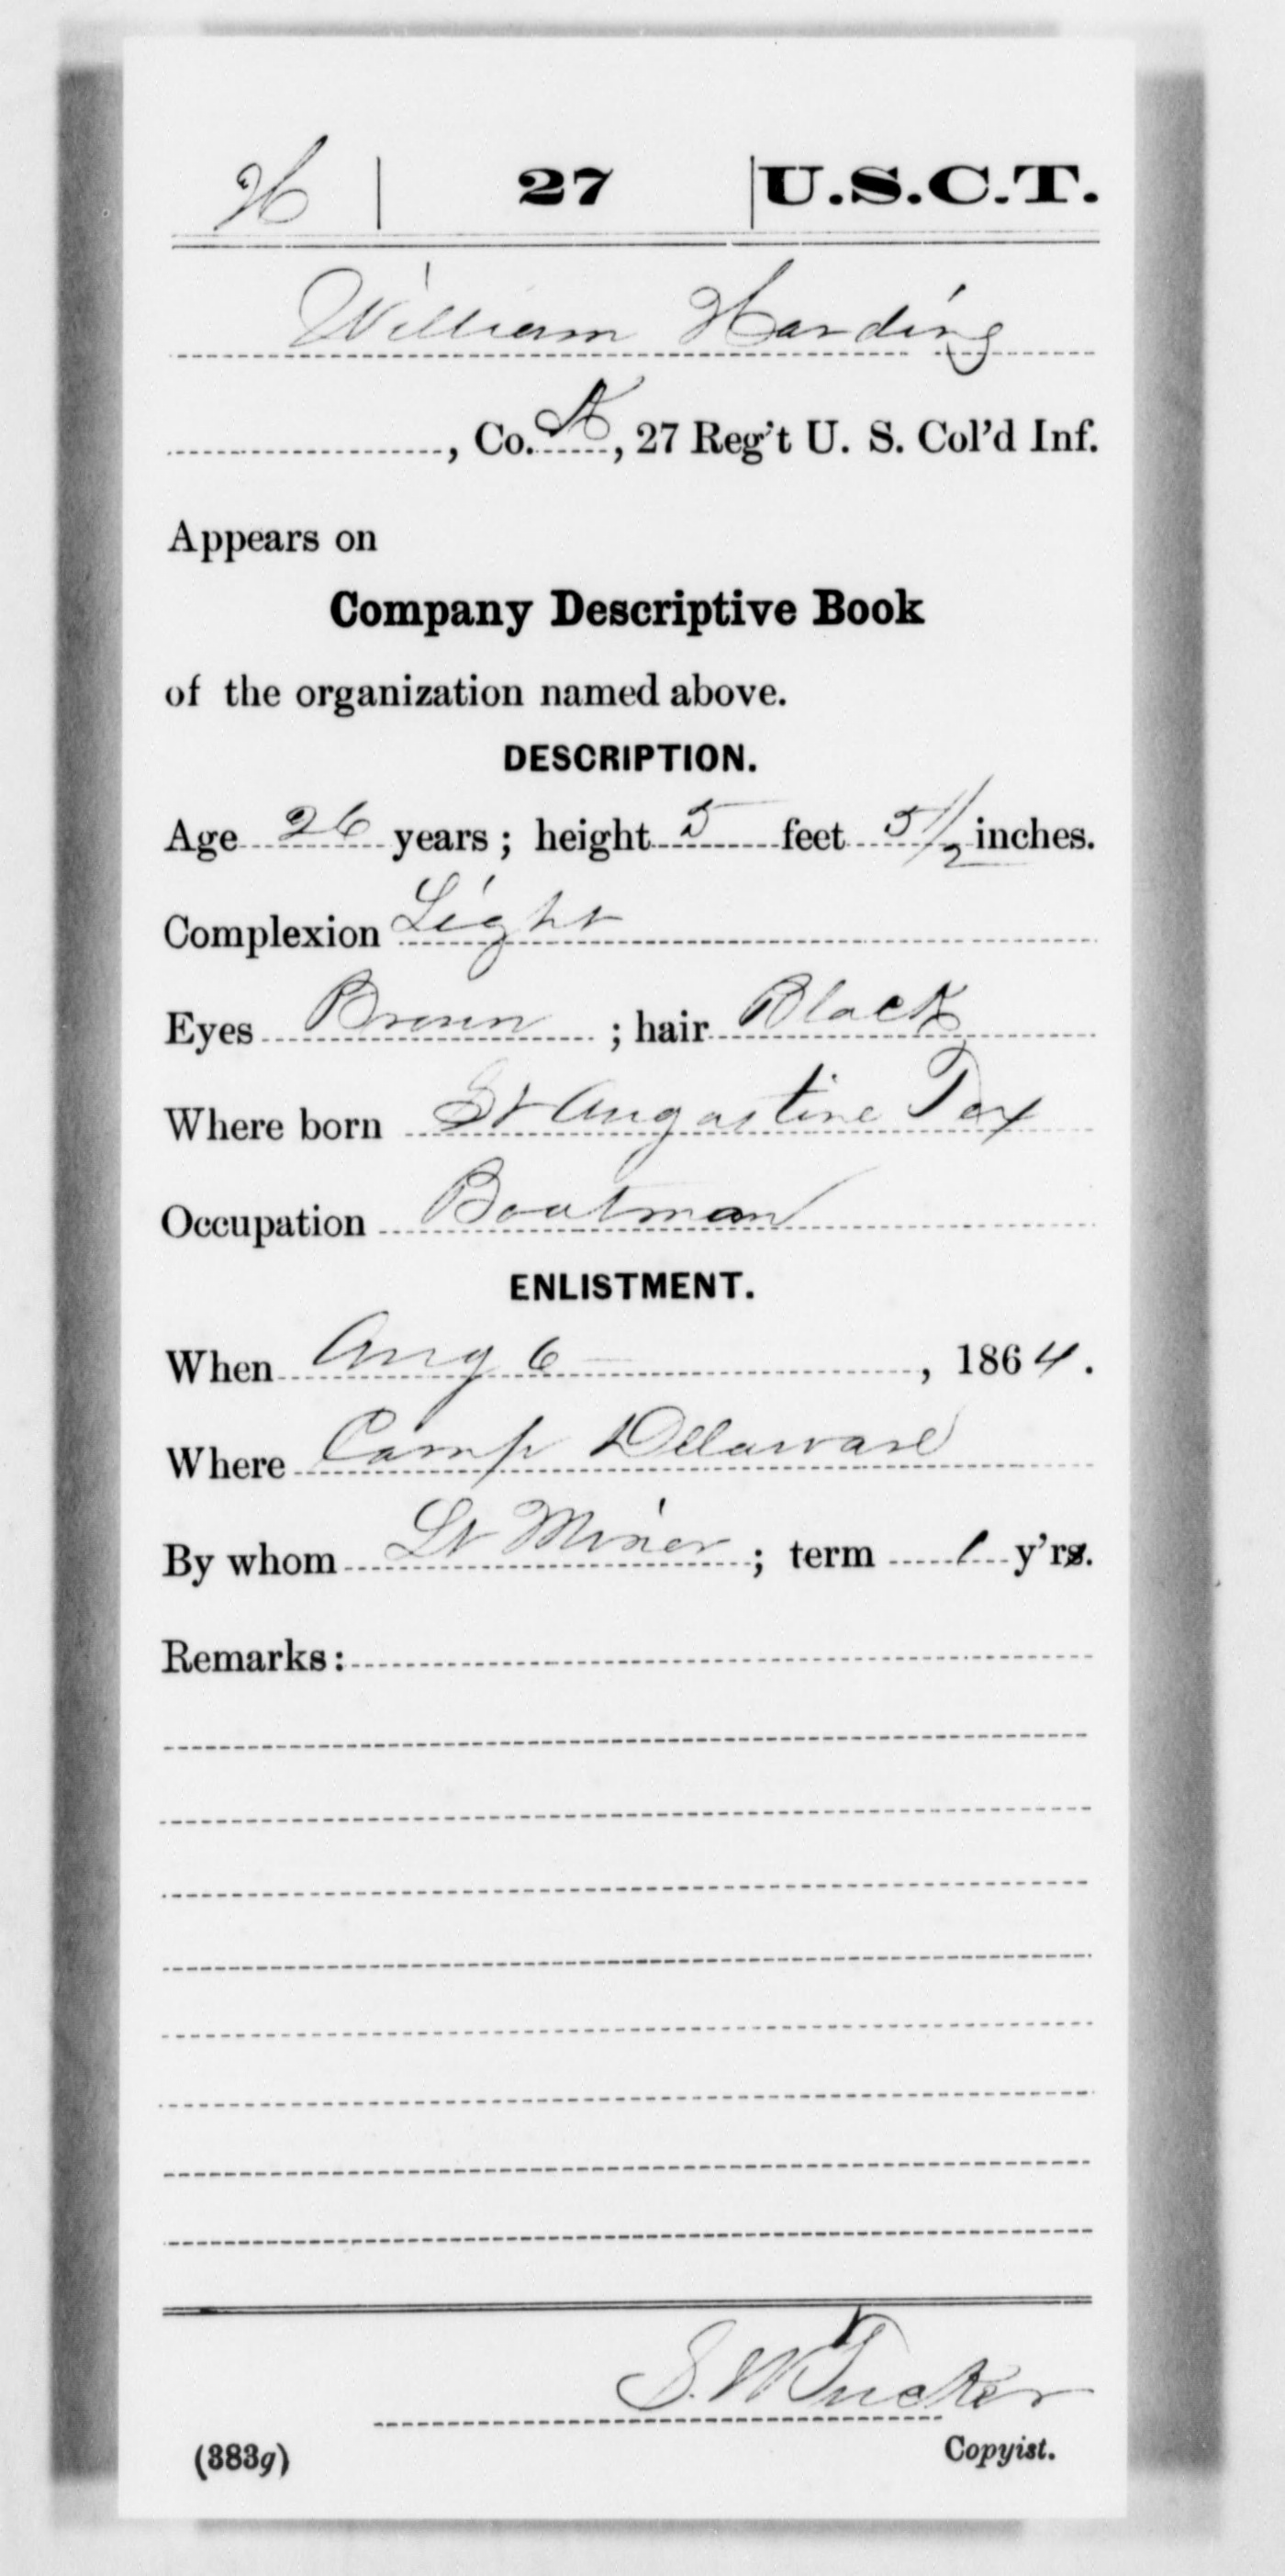 H | 27 | U.S.C.T.
William Harding
, Co. K, 27 Reg't U. S. Col'd Inf.
Appears on
Company Descriptive Book
of the organization named above.
DESCRIPTION.
Age 26 years; height 5 feet 5 1/2 inches.
Complexion Light
Eyes Brown ; hair Black
Where born St Augastine Tex
Occupation Boatman
ENLISTMENT.
When Aug 6 , 1864.
Where Camp Delaware
By whom Lt Miner ; term 1 y'rs.
Remarks:
S. W. Tucker
(383g) Copyist.